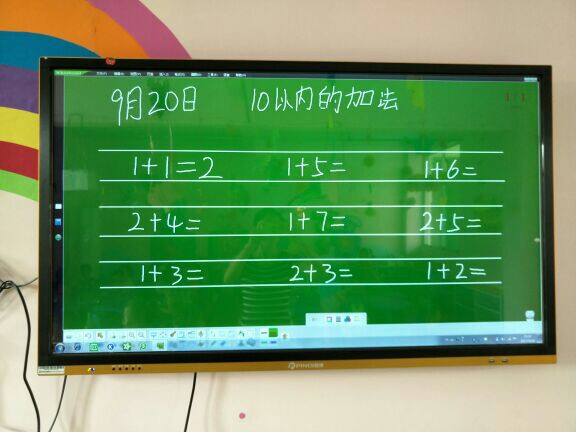 9月20日 10以内的加法
1+1=2 1+5= 1+6=
2+4= 1+7= 2+5=
1+3= 2+3= 1+2=